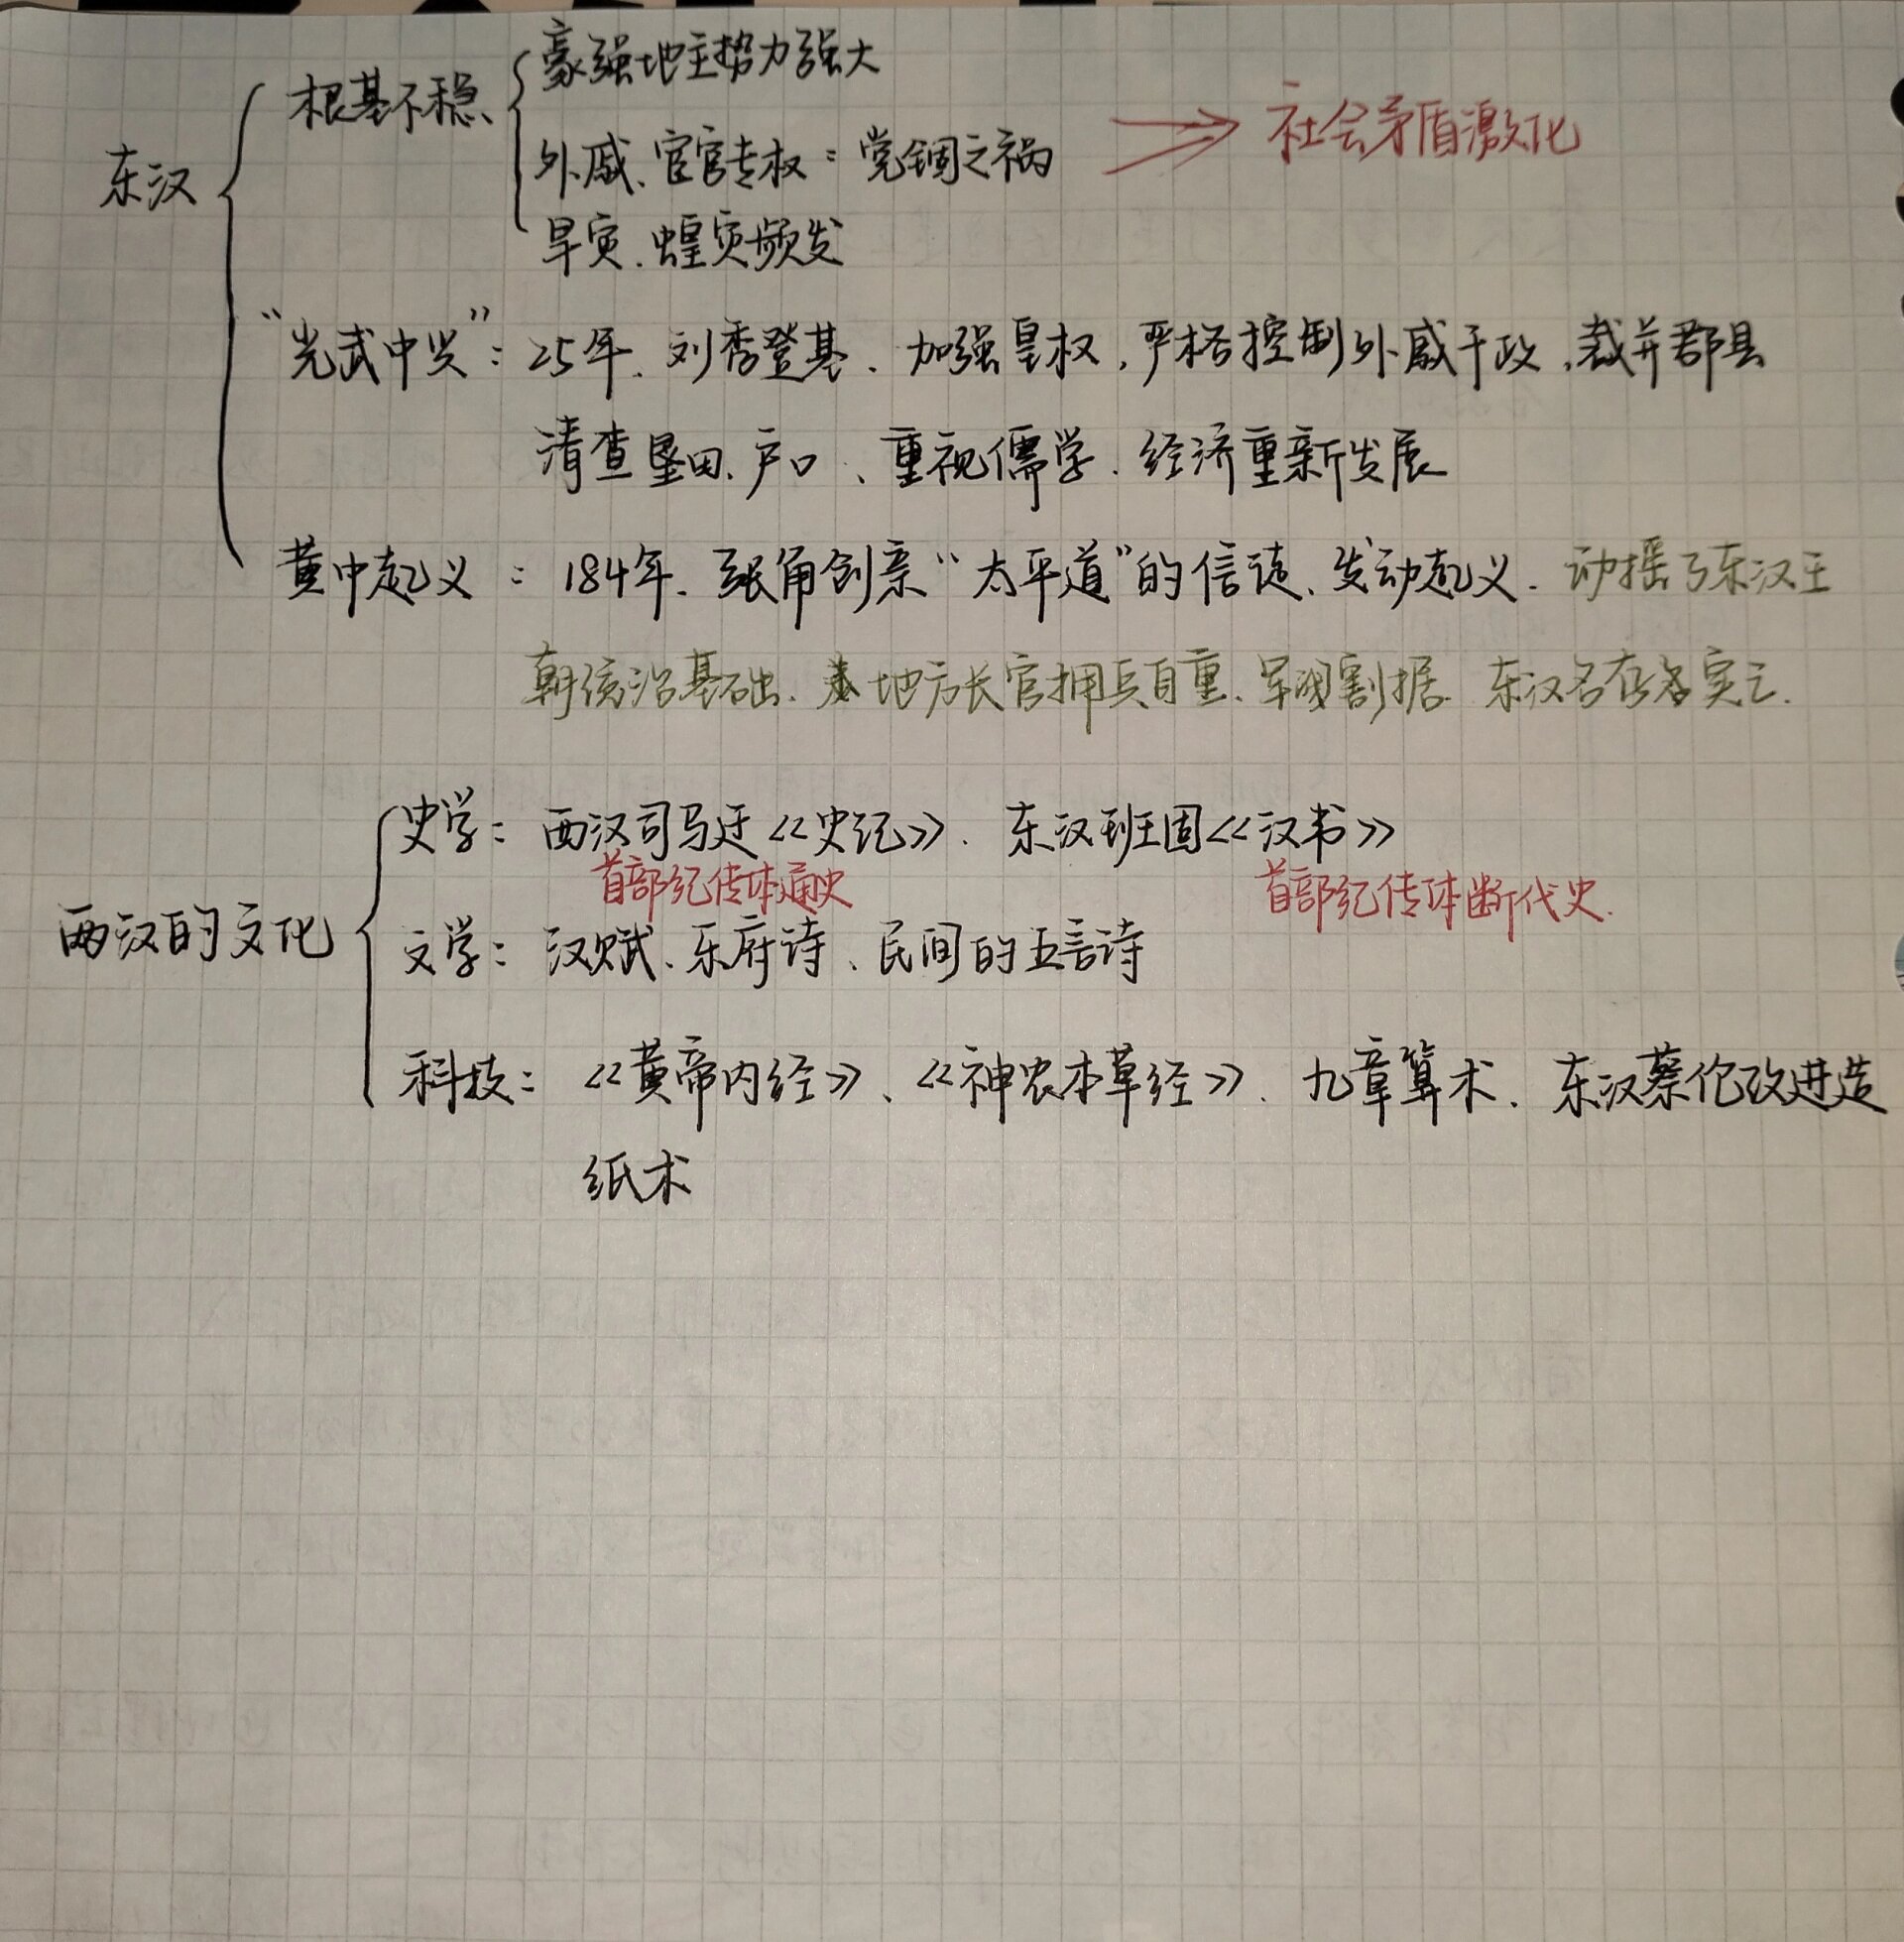 豪强地主势力强大
根基不稳
外戚、宦官专权：党锢之祸
社会矛盾激化
东汉
旱灾、蝗灾频发
“光武中兴”：25年、刘秀登基、加强皇权，严格控制外戚干政，裁并郡县
清查垦田、户口、重视儒学、经济重新发展
黄巾起义：184年、张角创亲“太平道”的信徒、发动起义、动摇了东汉王
朝统治基础、地方长官拥兵自重、军阀割据 东汉名存实亡.
史学：西汉司马迁《史记》、东汉班固《汉书》
首部纪传体通史 首部纪传体断代史.
两汉的文化
文学：汉赋、乐府诗、民间的五言诗
科技：《黄帝内经》、《神农本草经》、九章算术、东汉蔡伦改进造
纸术